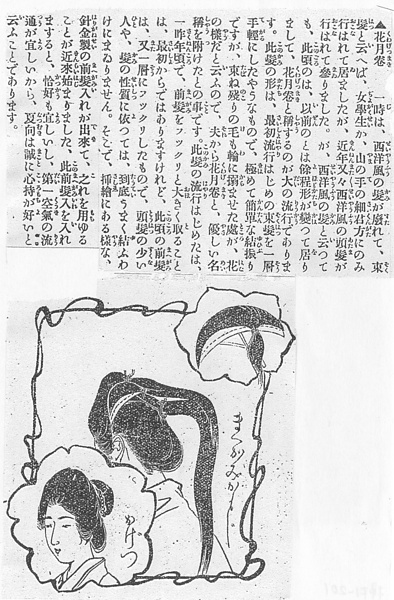 ▲花月卷　一時は、西洋風の髮が廢れて、束
髮と云へば、女學生か、山の手の細君方にのみ
行はれて居ましたが、近年又々西洋風の頭髮が
行はれて參りました。が、西洋風の髮と云つて
も、此頃のは、以前のとは餘程形が變つて居り
まして、花月卷と稱するのが大の流行でありま
す。此髮の形は、最初流行はじめの束髮を一層
手輕にしたやうなもので、極めて簡單な結振り
ですが、束ね殘りの毛も輪に搦ませた處が、花
の樣だと云ふので、夫から花月卷と、優しい名
稱を附けた上の事です。此髮の流行はじめたは、
一昨年頃で、前髮をフックリと大きく取ること
は、最初からではありますけれど、此頃の前髮
は、又一層にフックリしたもので、頭髮の少い
人や、髮の性質に依つては、到底うまく結ふわ
けにまゐりません。そこで、揷繪にある樣な、
針金製の前髮入れが出來て、之れを用ゆる
ことが近來始まりました、此前髮入を入れ
ますると、恰好も宜しいし、第一空氣の流
通が宜しいから、夏向は誠に心持が好いと
云ふことであります。
まへがみがし
かげつ